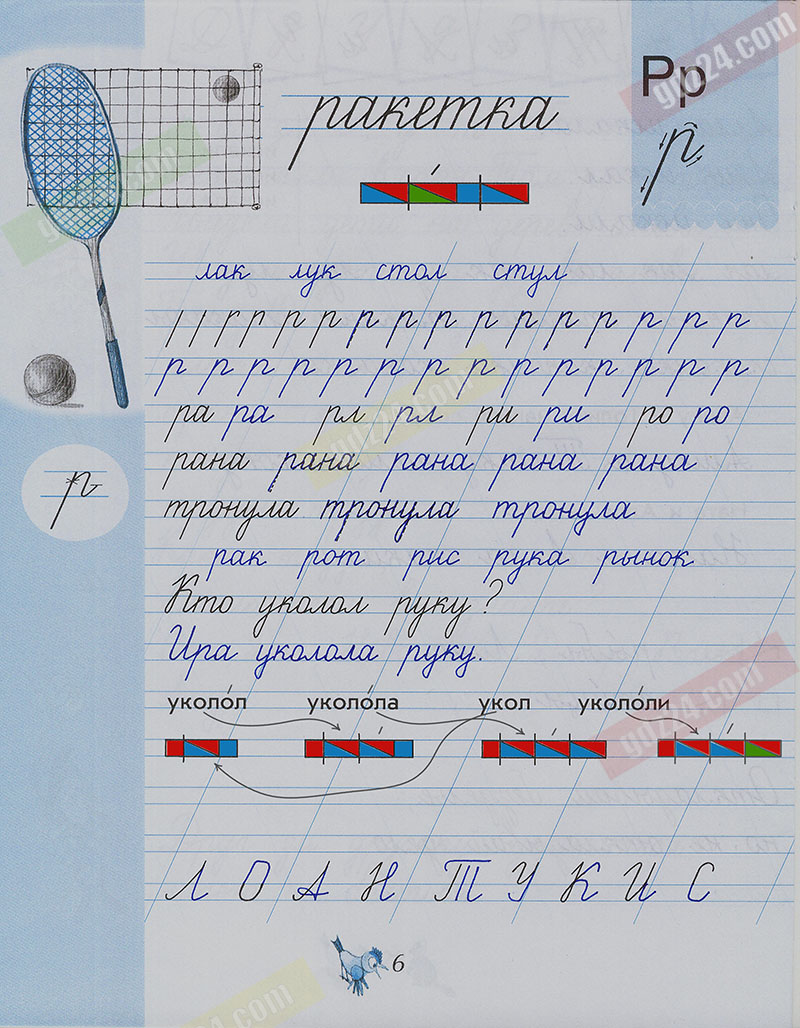 Рр
ракетка
р
лак лук стол стул
р р р р р р р р р р р р
р р р р р р р р р р р р р р
ра ра рл рл ри ри ро ро
р
рана рана рана рана рана
тронула тронула тронула
рак рот рис рука рынок
Кто уколол руку?
Ира уколола руку.
уколо́л уколо́ла укол уколо́ли
Л О А Н Т У К И С
6
gdz24.com
gdz24.com
gdz24.com